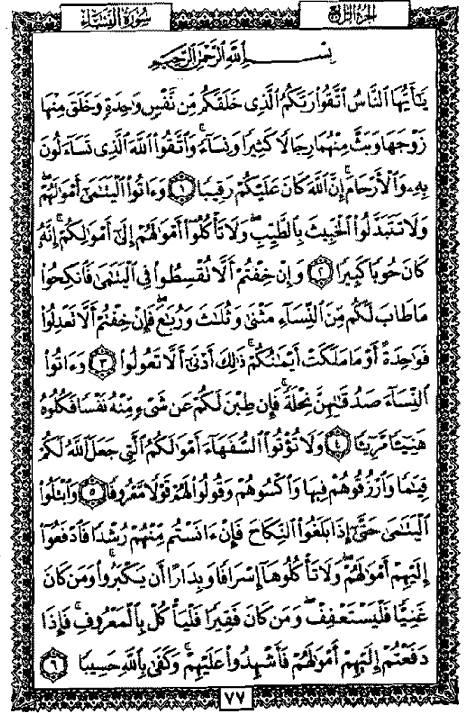 سُورَةُ النِّسَاءِ
الجزء الرابع
بِسْمِ اللَّهِ الرَّحْمَٰنِ الرَّحِيمِ
يَٰٓأَيُّهَا النَّاسُ اتَّقُوا۟ رَبَّكُمُ الَّذِى خَلَقَكُم مِّن نَّفْسٍ وَٰحِدَةٍ وَخَلَقَ مِنْهَا
زَوْجَهَا وَبَثَّ مِنْهُمَا رِجَالًا كَثِيرًا وَنِسَآءً ۚ وَاتَّقُوا۟ اللَّهَ الَّذِى تَسَآءَلُونَ
بِهِۦ وَالْأَرْحَامَ ۚ إِنَّ اللَّهَ كَانَ عَلَيْكُمْ رَقِيبًا ١ وَءَاتُوا۟ الْيَتَٰمَىٰٓ أَمْوَٰلَهُمْ ۖ
وَلَا تَتَبَدَّلُوا۟ الْخَبِيثَ بِالطَّيِّبِ ۖ وَلَا تَأْكُلُوٓا۟ أَمْوَٰلَهُمْ إِلَىٰٓ أَمْوَٰلِكُمْ ۚ إِنَّهُۥ
كَانَ حُوبًا كَبِيرًا ٢ وَإِنْ خِفْتُمْ أَلَّا تُقْسِطُوا۟ فِى الْيَتَٰمَىٰ فَانكِحُوا۟
مَا طَابَ لَكُم مِّنَ النِّسَآءِ مَثْنَىٰ وَثُلَٰثَ وَرُبَٰعَ ۖ فَإِنْ خِفْتُمْ أَلَّا تَعْدِلُوا۟
فَوَٰحِدَةً أَوْ مَا مَلَكَتْ أَيْمَٰنُكُمْ ۚ ذَٰلِكَ أَدْنَىٰٓ أَلَّا تَعُولُوا۟ ٣ وَءَاتُوا۟
النِّسَآءَ صَدُقَٰتِهِنَّ نِحْلَةً ۚ فَإِن طِبْنَ لَكُمْ عَن شَىْءٍ مِّنْهُ نَفْسًا فَكُلُوهُ
هَنِيٓـًٔا مَّرِيٓـًٔا ٤ وَلَا تُؤْتُوا۟ السُّفَهَآءَ أَمْوَٰلَكُمُ الَّتِى جَعَلَ اللَّهُ لَكُمْ
قِيَٰمًا وَارْزُقُوهُمْ فِيهَا وَاكْسُوهُمْ وَقُولُوا۟ لَهُمْ قَوْلًا مَّعْرُوفًا ٥ وَابْتَلُوا۟
الْيَتَٰمَىٰ حَتَّىٰٓ إِذَا بَلَغُوا۟ النِّكَاحَ فَإِنْ ءَانَسْتُم مِّنْهُمْ رُشْدًا فَادْفَعُوٓا۟
إِلَيْهِمْ أَمْوَٰلَهُمْ ۖ وَلَا تَأْكُلُوهَآ إِسْرَافًا وَبِدَارًا أَن يَكْبَرُوا۟ ۚ وَمَن كَانَ
غَنِيًّا فَلْيَسْتَعْفِفْ ۖ وَمَن كَانَ فَقِيرًا فَلْيَأْكُلْ بِالْمَعْرُوفِ ۚ فَإِذَا
دَفَعْتُمْ إِلَيْهِمْ أَمْوَٰلَهُمْ فَأَشْهِدُوا۟ عَلَيْهِمْ ۚ وَكَفَىٰ بِاللَّهِ حَسِيبًا ٦
٧٧